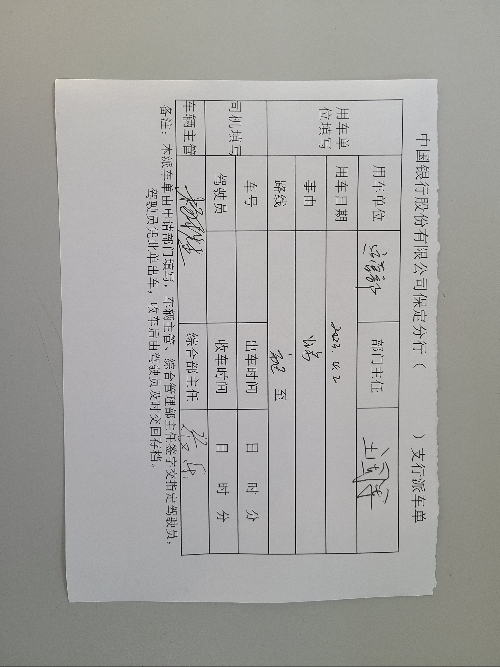 中国银行股份有限公司保定分行（ ）支行派车单
用车单位填写 用车单位 运营部 部门主任
用车日期
事由
路线 至
司机填写 车号 出车时间 日 时 分
驾驶员 收车时间 日 时 分
车辆主管 综合部主任
备注：本派车单由申请部门填写，车辆主管、综合管理部主任签字交指定驾驶员，
驾驶员凭此单出车，收车后由驾驶员及时交回存档。